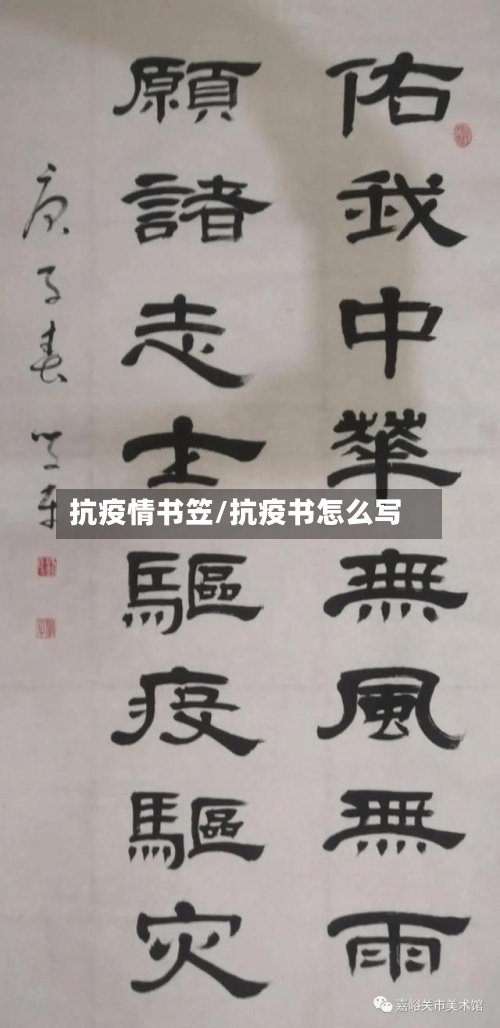 佑我中華無風無雨
願諸志士驅疫驅灾
庚子春
抗疫情书笠/抗疫书怎么写
嘉峪关市美术馆